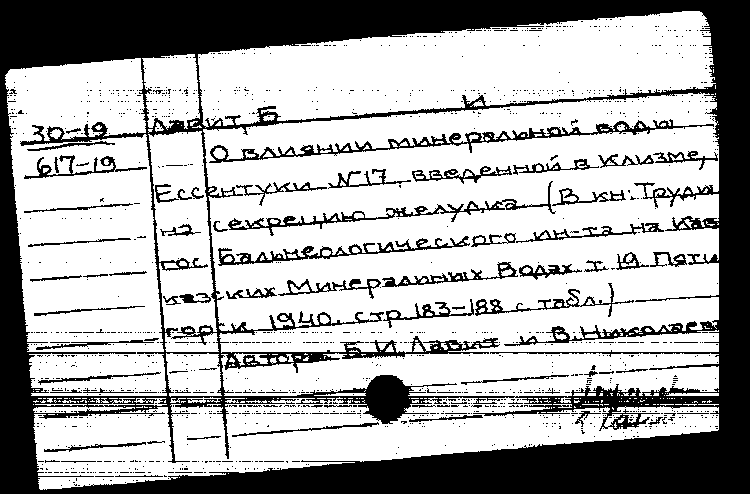 30-19 Лавит, Б И
617-19 О влиянии минеральной воды
Ессентуки №17, введенной в клизме,
на секрецию желудка (В кн: Труды
гос. Бальнеологического ин-та на Кав
казских Минеральных Водах т. 19 Пяти
горск, 1940. стр 183-188 с табл.)
Авторы: Б. И. Лавит и В. Николаев